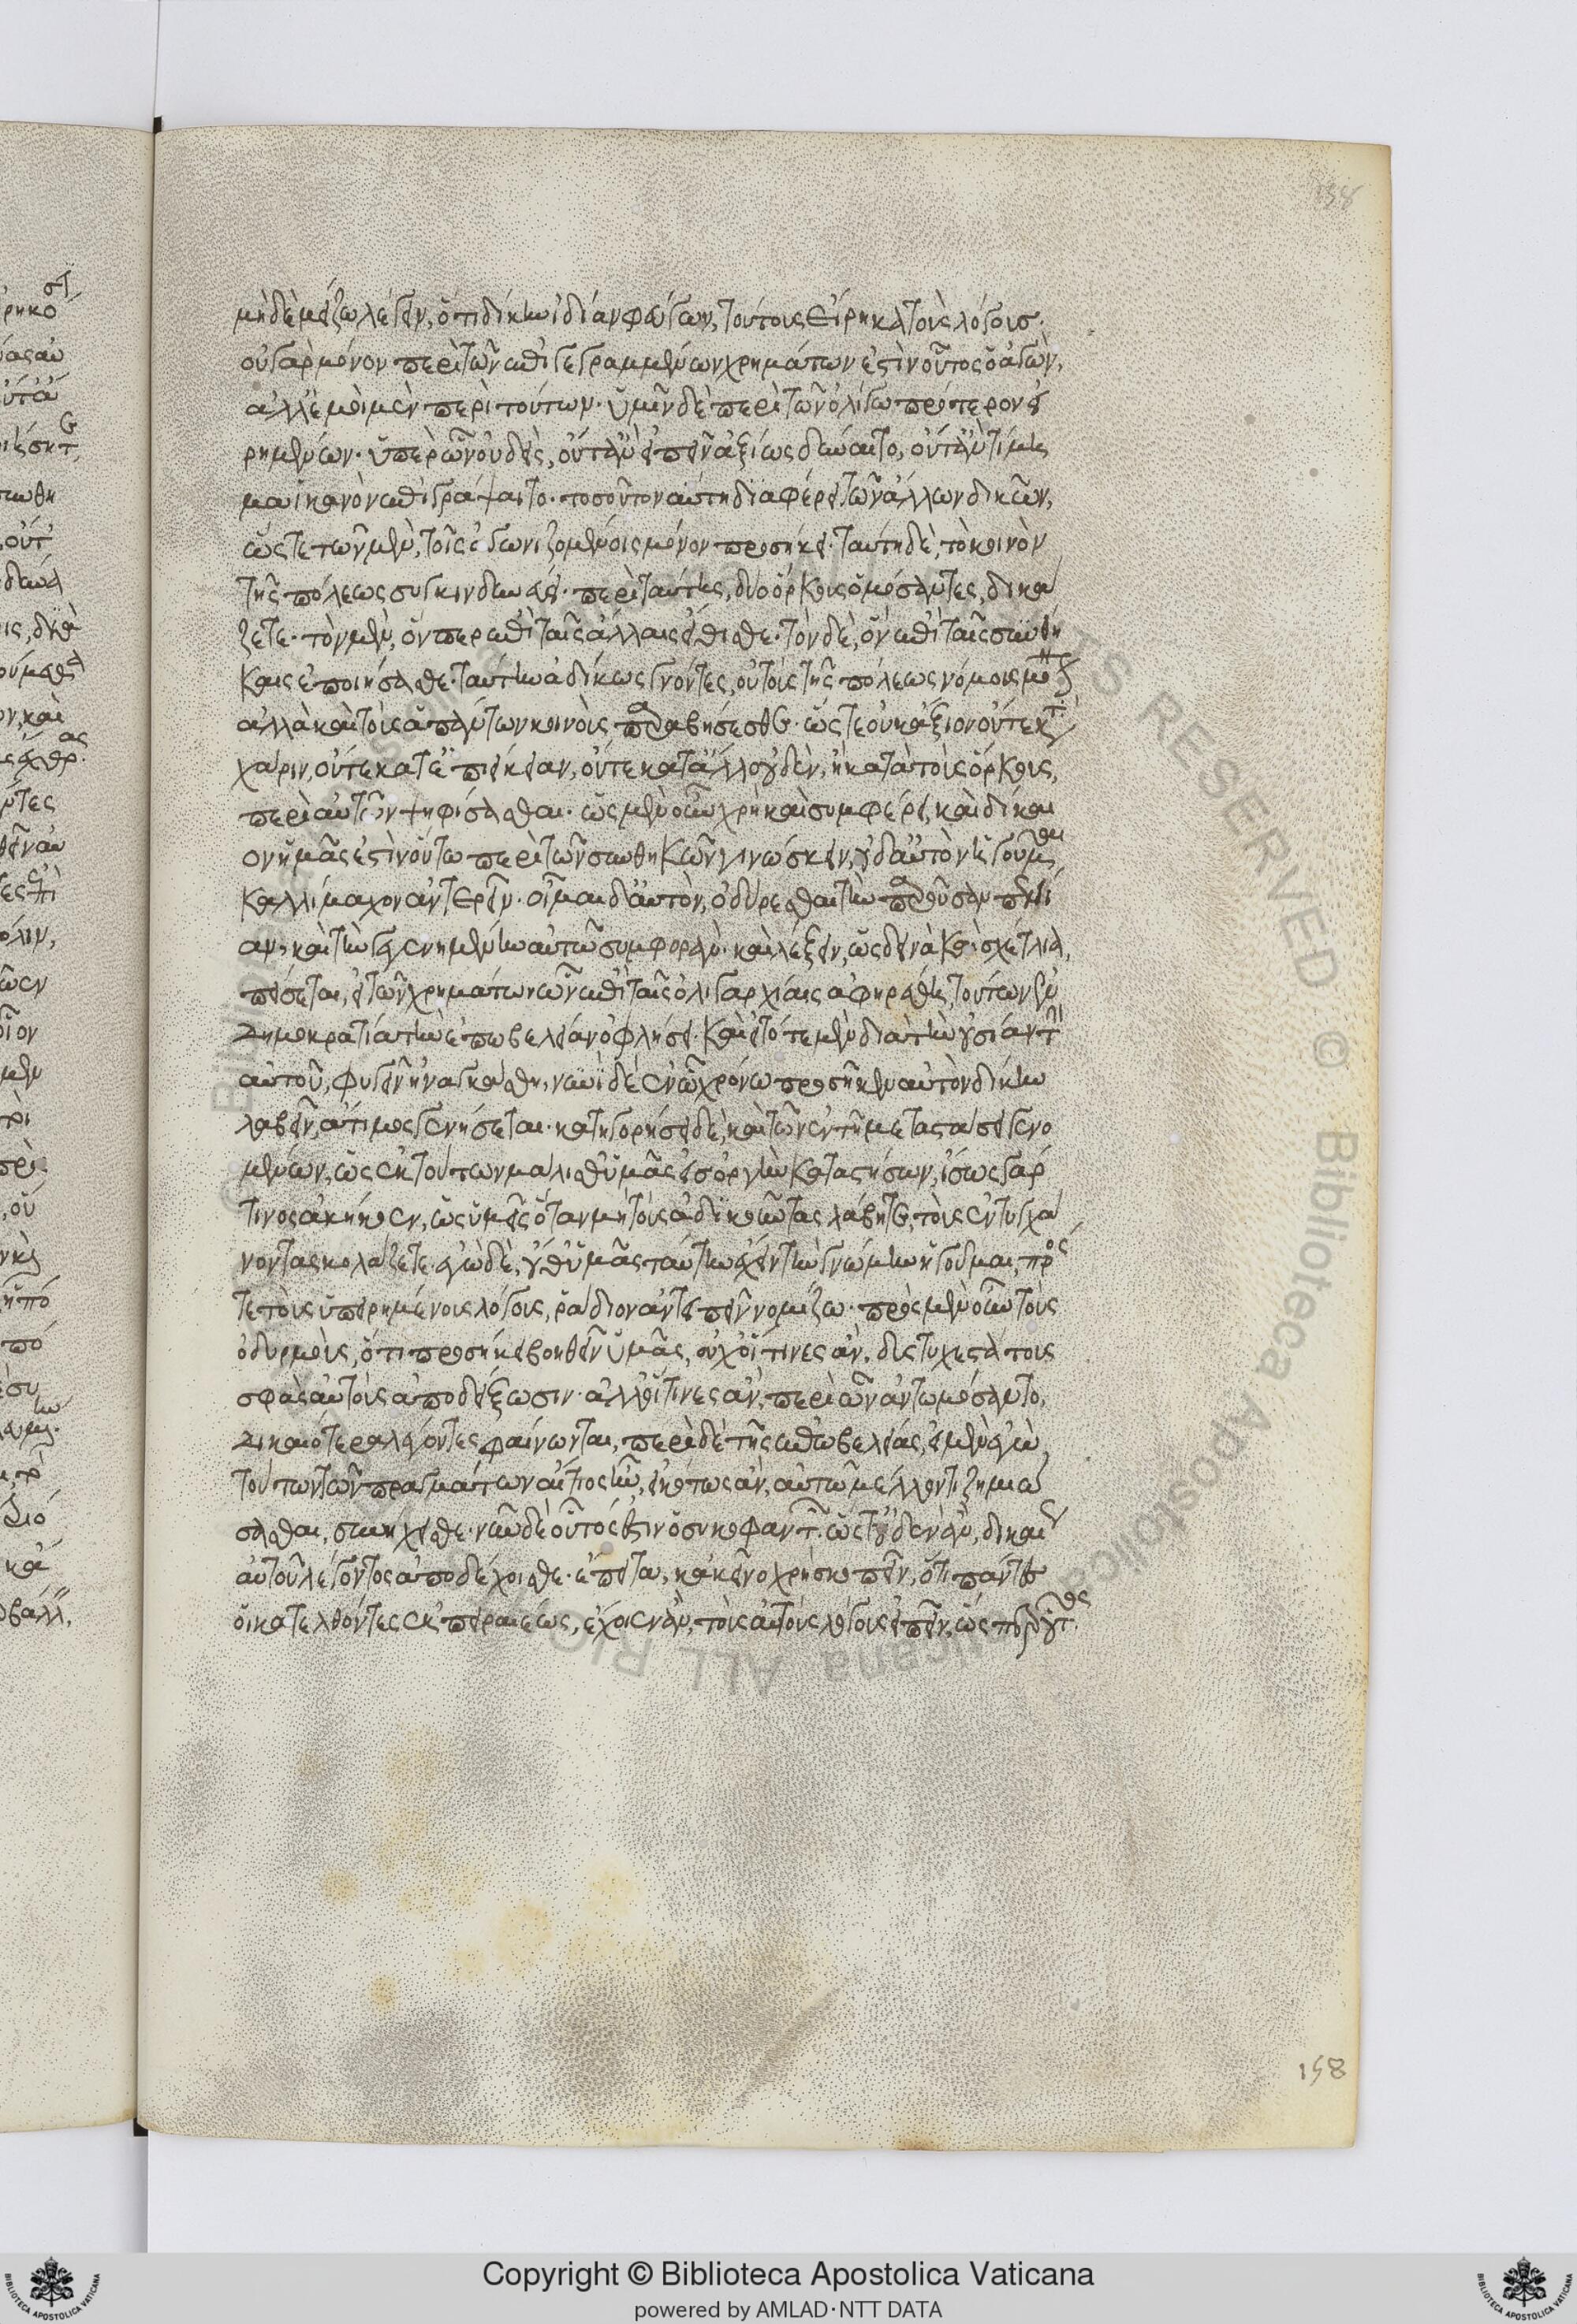 μηδὲ μείζω λέγειν, ὅτι δίκην ἰδίαν φεύγων, τούτους εἴρηκα τοὺς λόγους·
οὐ γὰρ μόνον περὶ τῶν ἐπιγεγραμμένων χρημάτων ἐστὶν οὗτος ὁ ἀγών,
ἀλλ' ἐμοὶ μὲν περὶ τούτων· ὑμῖν δὲ περὶ τῶν ὀλίγω πρότερον εἰ
ρημένων· ὑπὲρ ὧν οὐδεὶς, οὔτ' ἂν εἰπεῖν ἀξίως δύναιτο, οὔτ' ἂν τίμη
μα ἱκανὸν ἐπιγράψαιτο· τοσοῦτον αὕτη διαφέρει τῶν ἄλλων δικῶν,
ὥστε τῶν μὲν, τοῖς ἀγωνιζομένοις μόνον προσήκει· ταύτη δὲ, τὸ κοινὸν
τῆς πόλεως συγκινδυνεύει· περὶ ταύτης, δύο ὅρκους ὀμόσαντες, δικά
ζετε· τὸν μὲν, ὅνπερ ἐπὶ ταῖς ἄλλαις εἴθισθε· τὸν δὲ, ὃν ἐπὶ ταῖς συνθή
καις ἐποιήσασθε· ταύτην ἀδίκως γνόντες, οὐ τοὺς τῆς πόλεως νόμους μόνον
ἀλλὰ καὶ τοὺς ἁπάντων κοινοὺς παραβήσεσθε· ὥστε οὐκ ἄξιον οὔτε κατὰ
χάριν, οὔτε κατ' ἐπιείκειαν, οὔτε κατ' ἄλλο οὐδὲν, ἢ κατὰ τοὺς ὅρκους,
περὶ αὐτῶν ψηφίσασθαι· ὡς μὲν οὖν χρὴ καὶ συμφέρει, καὶ δίκαι
ον ἡμᾶς ἐστὶν οὕτω περὶ τῶν συνθηκῶν γινώσκειν, οὐδ' αὐτὸν ἡγοῦμαι
Καλλίμαχον ἀντερεῖν· οἶμαι δ' αὐτὸν, ὀδύρεσθαι τὴν παροῦσαν πενί
αν, καὶ τὴν γεγενημένην αὐτῶ συμφοράν· καὶ λέξειν, ὡς δεινὰ καὶ σχέτλια
πείσεται, εἰ τῶν χρημάτων ὧν ἐπὶ ταῖς ὀλιγαρχίαις ἀφηρέθη, τούτων ἐν
δημοκρατία τὴν ἐπωβελείαν ὀφλήσει· καὶ εἰ τότε μὲν διὰ τὴν οὐσίαν τὴν
αὐτοῦ, φυγεῖν ἠναγκάσθη, νυνὶ δὲ ἐν ὧ χρόνω προσῆκεν αὐτὸν δίκην
λαβεῖν, ἄτιμος γενήσεται· κατηγορήσει δὲ, καὶ τῶν ἐν τῆ μεταστάσει γενο
μένων, ὡς ἐκ τούτων μάλισθ' ὑμᾶς εἰς ὀργὴν καταστήσων, ἴσως γάρ
τινος ἀκήκοεν, ὡς ὑμεῖς ὅταν μὴ τοὺς ἀδικοῦντας λάβητε, τοὺς ἐντυγχά
νοντας κολάζετε· ἐγὼ δὲ, οὔθ' ὑμᾶς ταύτην ἔχειν τὴν γνώμην ἡγοῦμαι, πρός
τε τοὺς ὑπειρημένους λόγους, ῥάδιον ἀντειπεῖν νομίζω· πρὸς μὲν οὖν τοὺς
ὀδυρμοὺς, ὅτι προσήκει βοηθεῖν ὑμᾶς, οὐχ οἵτινες ἂν, δυστυχεστάτους
σφᾶς αὐτοὺς ἀποδείξωσιν· ἀλλ' οἵτινες ἂν, περὶ ὧν ἀντωμόσαντο,
δικαιότερα λέγοντες φαίνωνται, περὶ δὲ τῆς ἐπωβελείας, εἰ μὲν ἐγὼ
τούτων τῶν πραγμάτων αἴτιος ἦν, εἰκότως ἂν, αὐτῶ μέλλοντι ζημιώ
σασθαι, συνήχθεσθε· νῦν δὲ οὗτός ἐστιν ὁ συκοφαντῶν· ὥστ' οὐδὲν ἂν, δικαίως
αὐτοῦ λέγοντος ἀποδέχοισθε· ἔπειτα, κἀκεῖνο χρὴ σκοπεῖν, ὅτι πάντες
οἱ κατελθόντες ἐκ πειραιέως, ἔχοιεν ἂν, τοὺς αὐτοὺς λόγους εἰπεῖν, ὥσπερ οὗτος
158
Copyright © Biblioteca Apostolica Vaticana
powered by AMLAD·NTT DATA